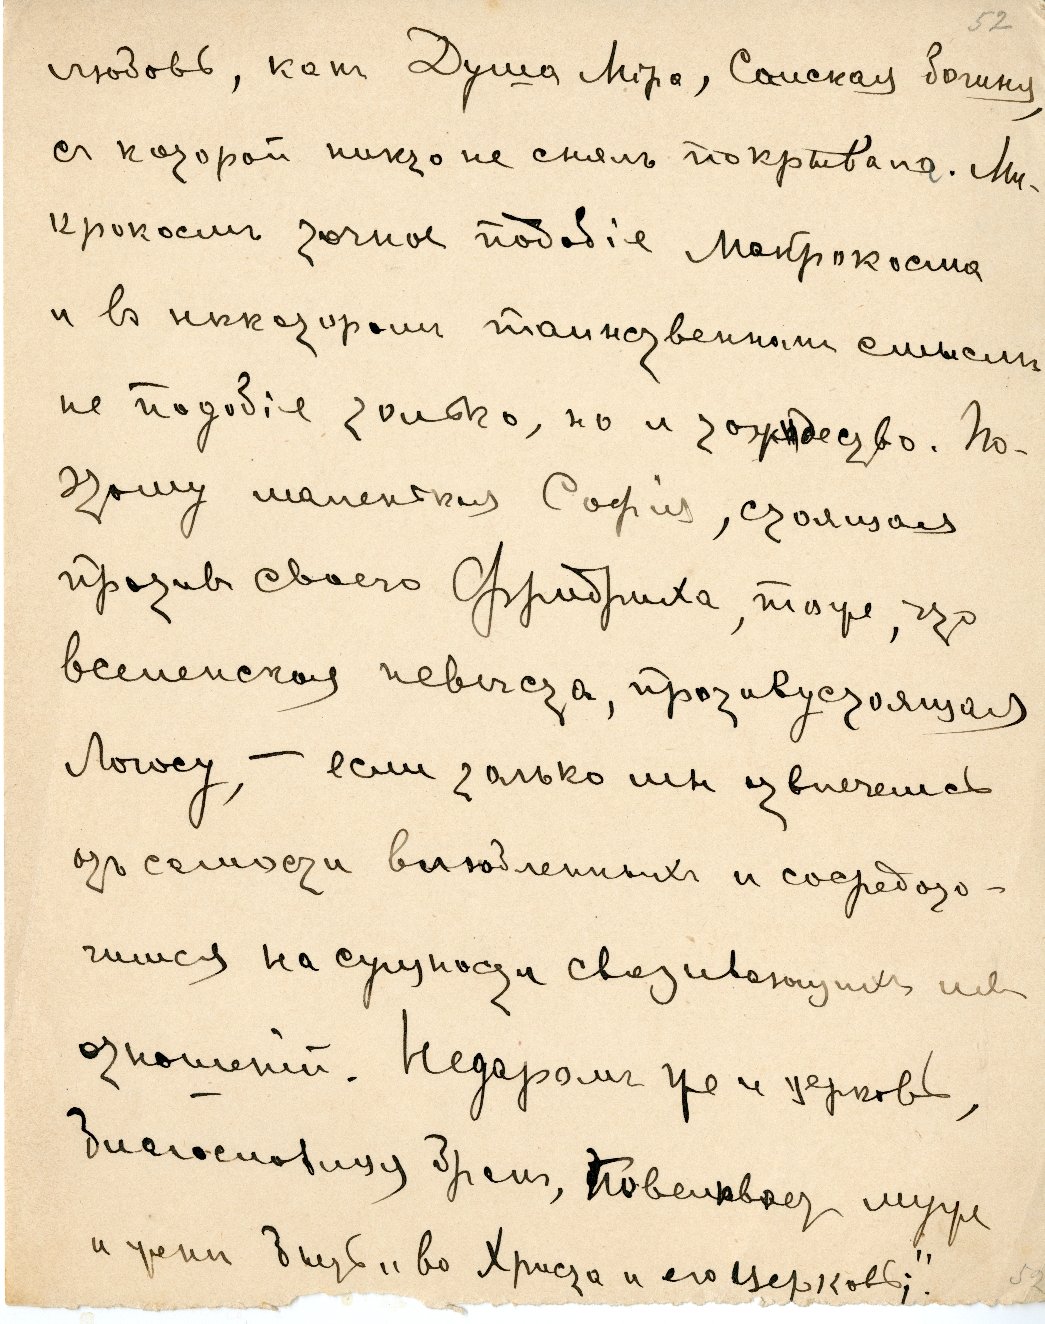 52
любовь, какъ Душа Міра, Саисская богиня,
съ которой никто не снялъ покрывала. Ми-
крокосмъ точное подобіе Макрокосма
и въ нѣкоторомъ таинственномъ смыслѣ
не подобіе только, но и тождество. По-
этому маленькая Софія, стоящая
противъ своего Фридриха, тоже, что
вселенская невѣста, противустоящая
Логосу, — если только мы отвлечемся
отъ самости влюбленныхъ и сосредото-
чимся на сущности связывающихъ ихъ
отношеній. Недаромъ же и церковь,
благословляя бракъ, повелѣваетъ мужу
и женѣ быть „во Христа и его церковь;".
52